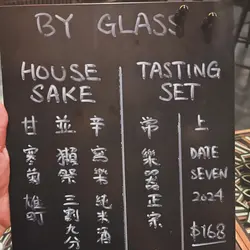 BY GLASS
HOUSE SAKE
甘 寒菊 雄町
並 獺祭 三割九分
辛 宮樂 純米酒
TASTING SET
常 樂器正宗
上
DATE
SEVEN
2024
$168